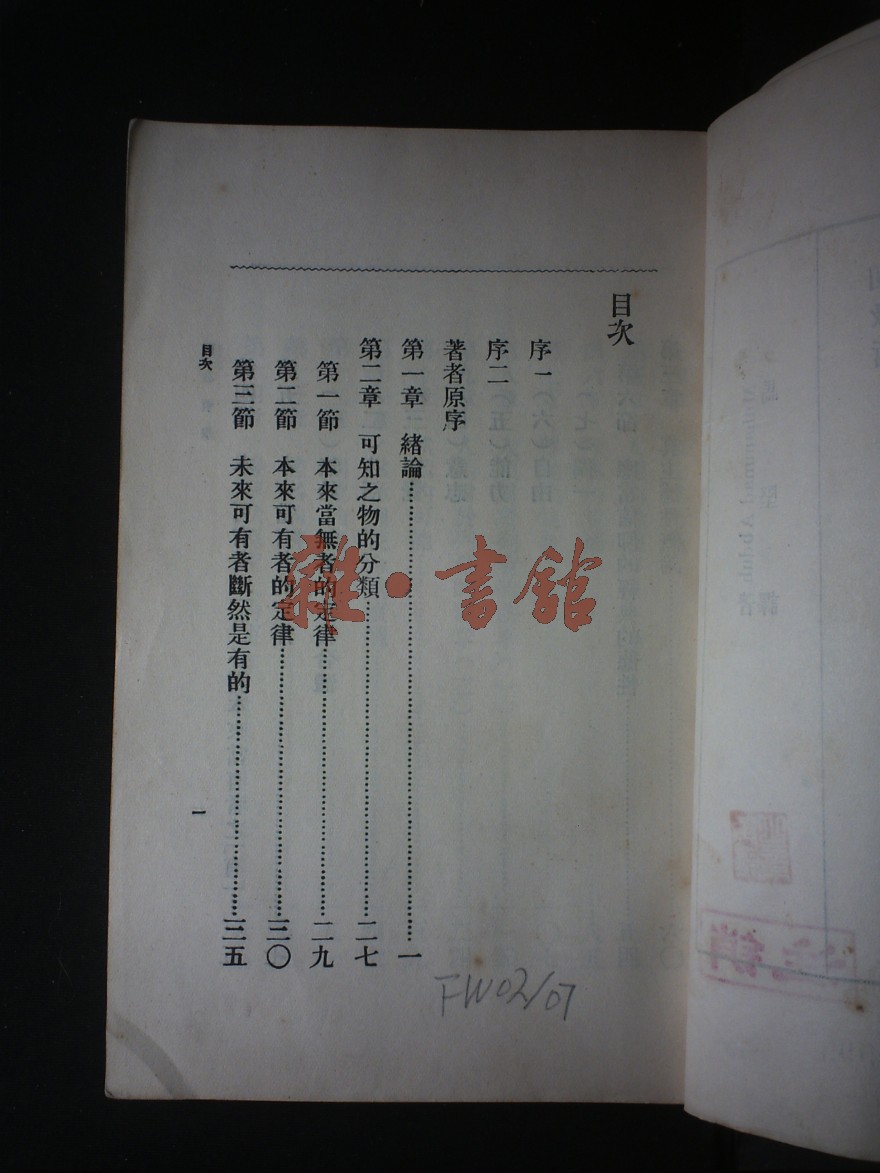 目次
序一
序二
著者原序
第一章 緒論……一
第二章 可知之物的分類……二七
第一節 本來當無者的定律……二九
第二節 本來可有者的定律……三〇
第三節 未來可有者斷然是有的……三五
目次
一
雜·書館
FW02/07